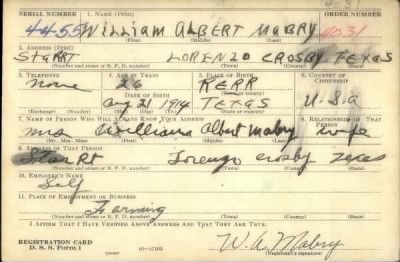 SERIAL NUMBER 1. NAME (Print) ORDER NUMBER
4455 William Albert Mabry 4031
(First) (Middle) (Last)
2. ADDRESS (Print)
Starrt LORENZO CROSBY TEXAS
(Number and street or R. F. D. number) (Town) (County) (State)
3. TELEPHONE 4. AGE IN YEARS 5. PLACE OF BIRTH 6. COUNTRY OF CITIZENSHIP
none 26 KERR
DATE OF BIRTH
Aug 21 1914 TEXAS U-S-A
(Exchange) (Number) (Mo.) (Day) (Yr.) (State or country)
7. NAME OF PERSON WHO WILL ALWAYS KNOW YOUR ADDRESS 8. RELATIONSHIP OF THAT PERSON
Mrs William Albert Mabry wife
(Mr., Mrs., Miss) (First) (Middle) (Last)
9. ADDRESS OF THAT PERSON
Starrt Lorenzo Crosby Texas
(Number and street or R. F. D. number) (Town) (County) (State)
10. EMPLOYER'S NAME
Self
11. PLACE OF EMPLOYMENT OR BUSINESS
Farming
(Number and street or R. F. D. number) (Town) (County) (State)
I AFFIRM THAT I HAVE VERIFIED ABOVE ANSWERS AND THAT THEY ARE TRUE.
REGISTRATION CARD
D. S. S. Form 1 (over) W. A. Mabry
(Registrant's signature)